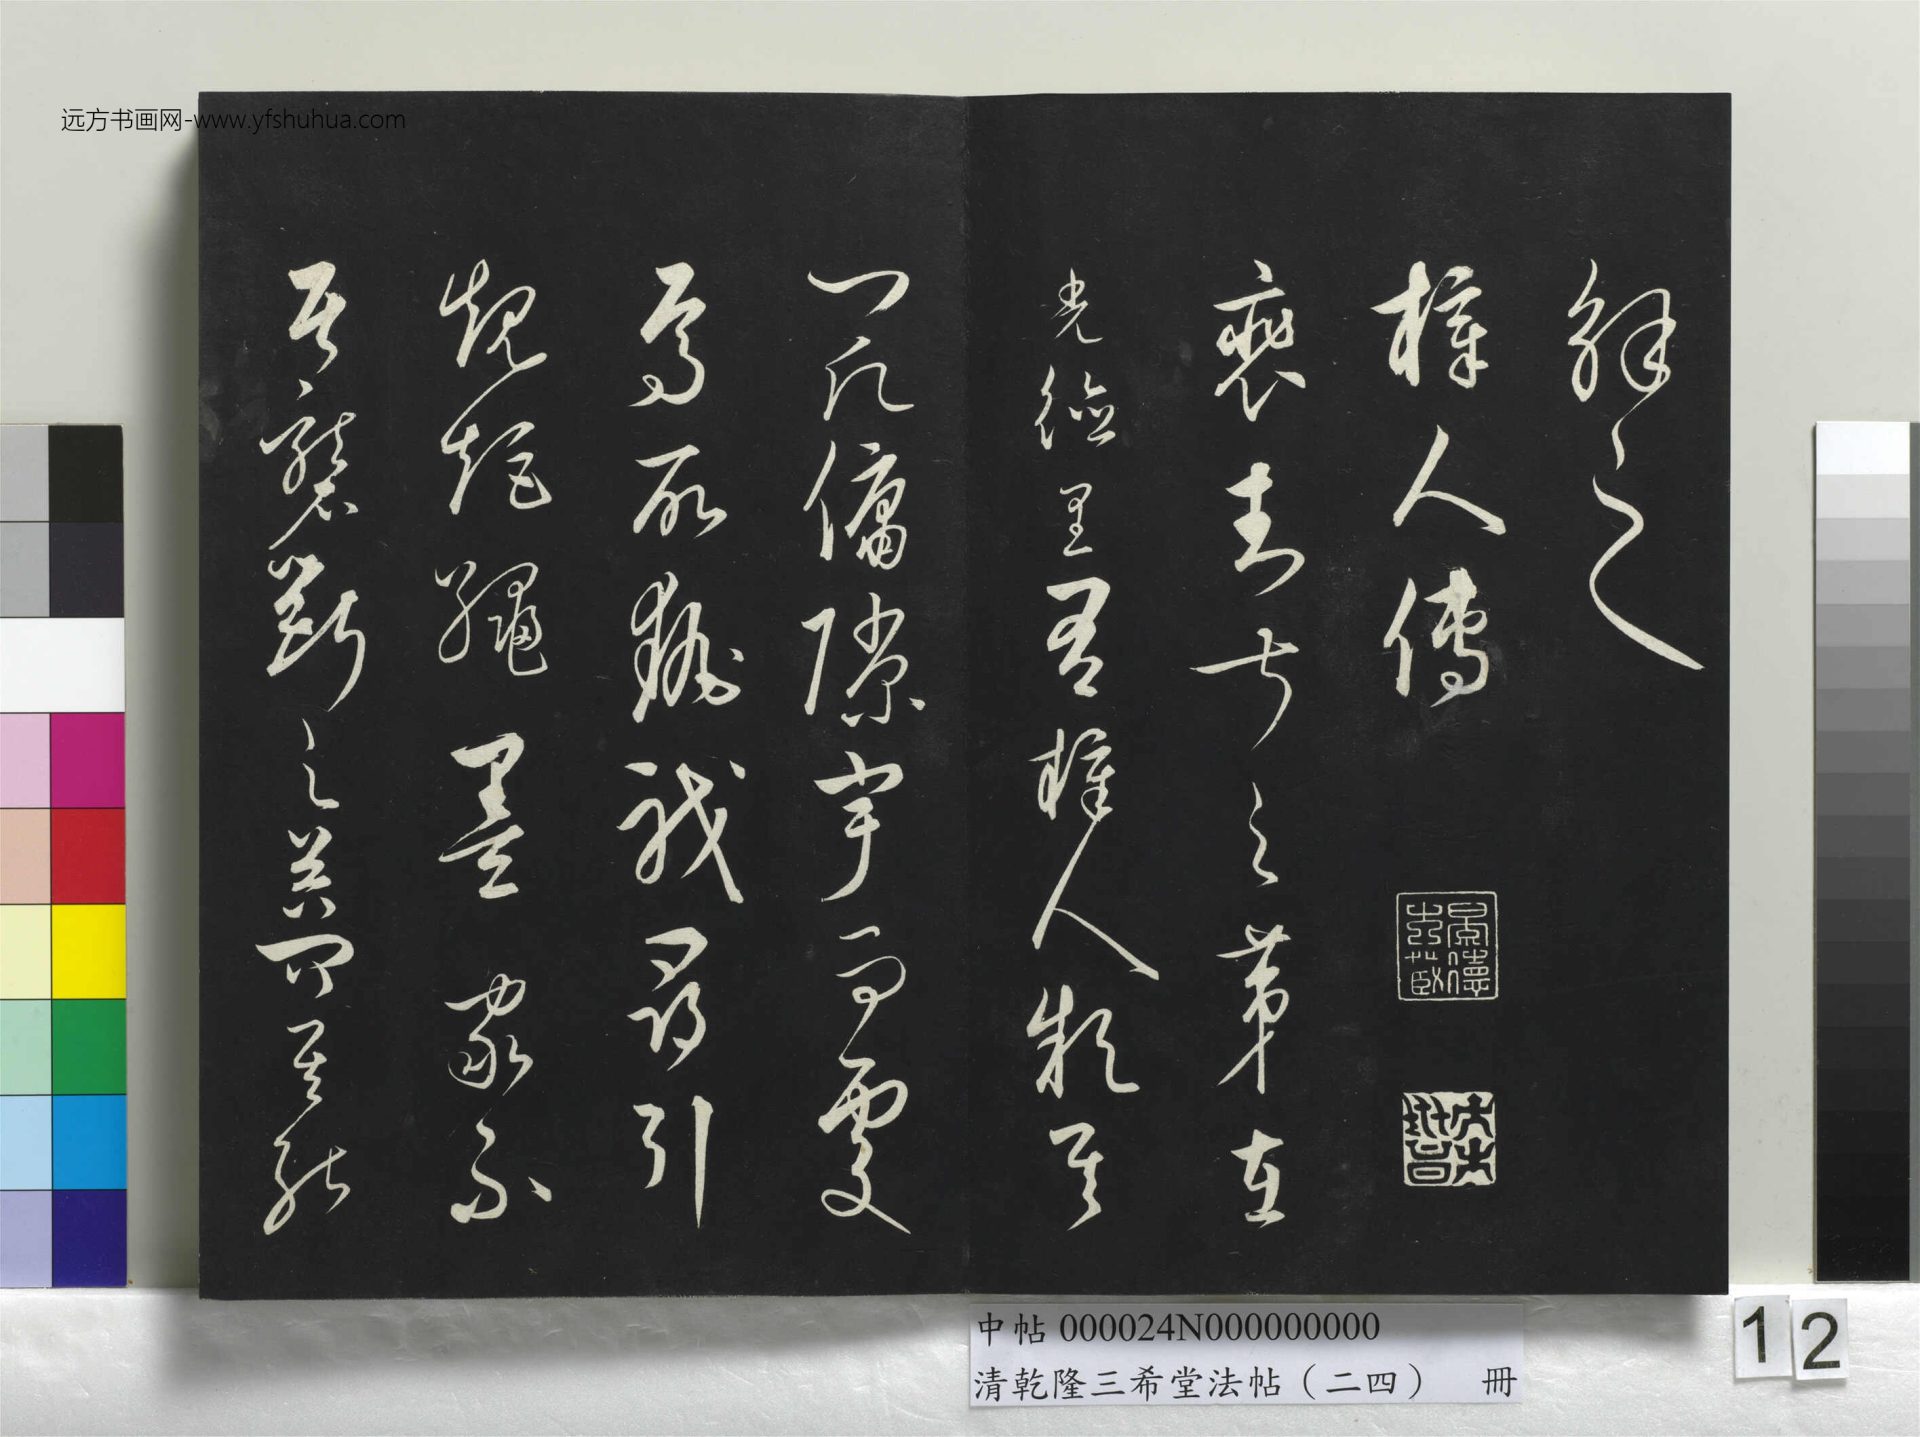 解之
梓人傳
裴封叔之第在
光德里有梓人款其
門願傭隙宇而處
焉所執職尋引
規矩繩墨家不
居礱斲之器問其能
远方书画网-www.yfshuhua.com
中帖 000024N000000000
清乾隆三希堂法帖（二四） 冊
12